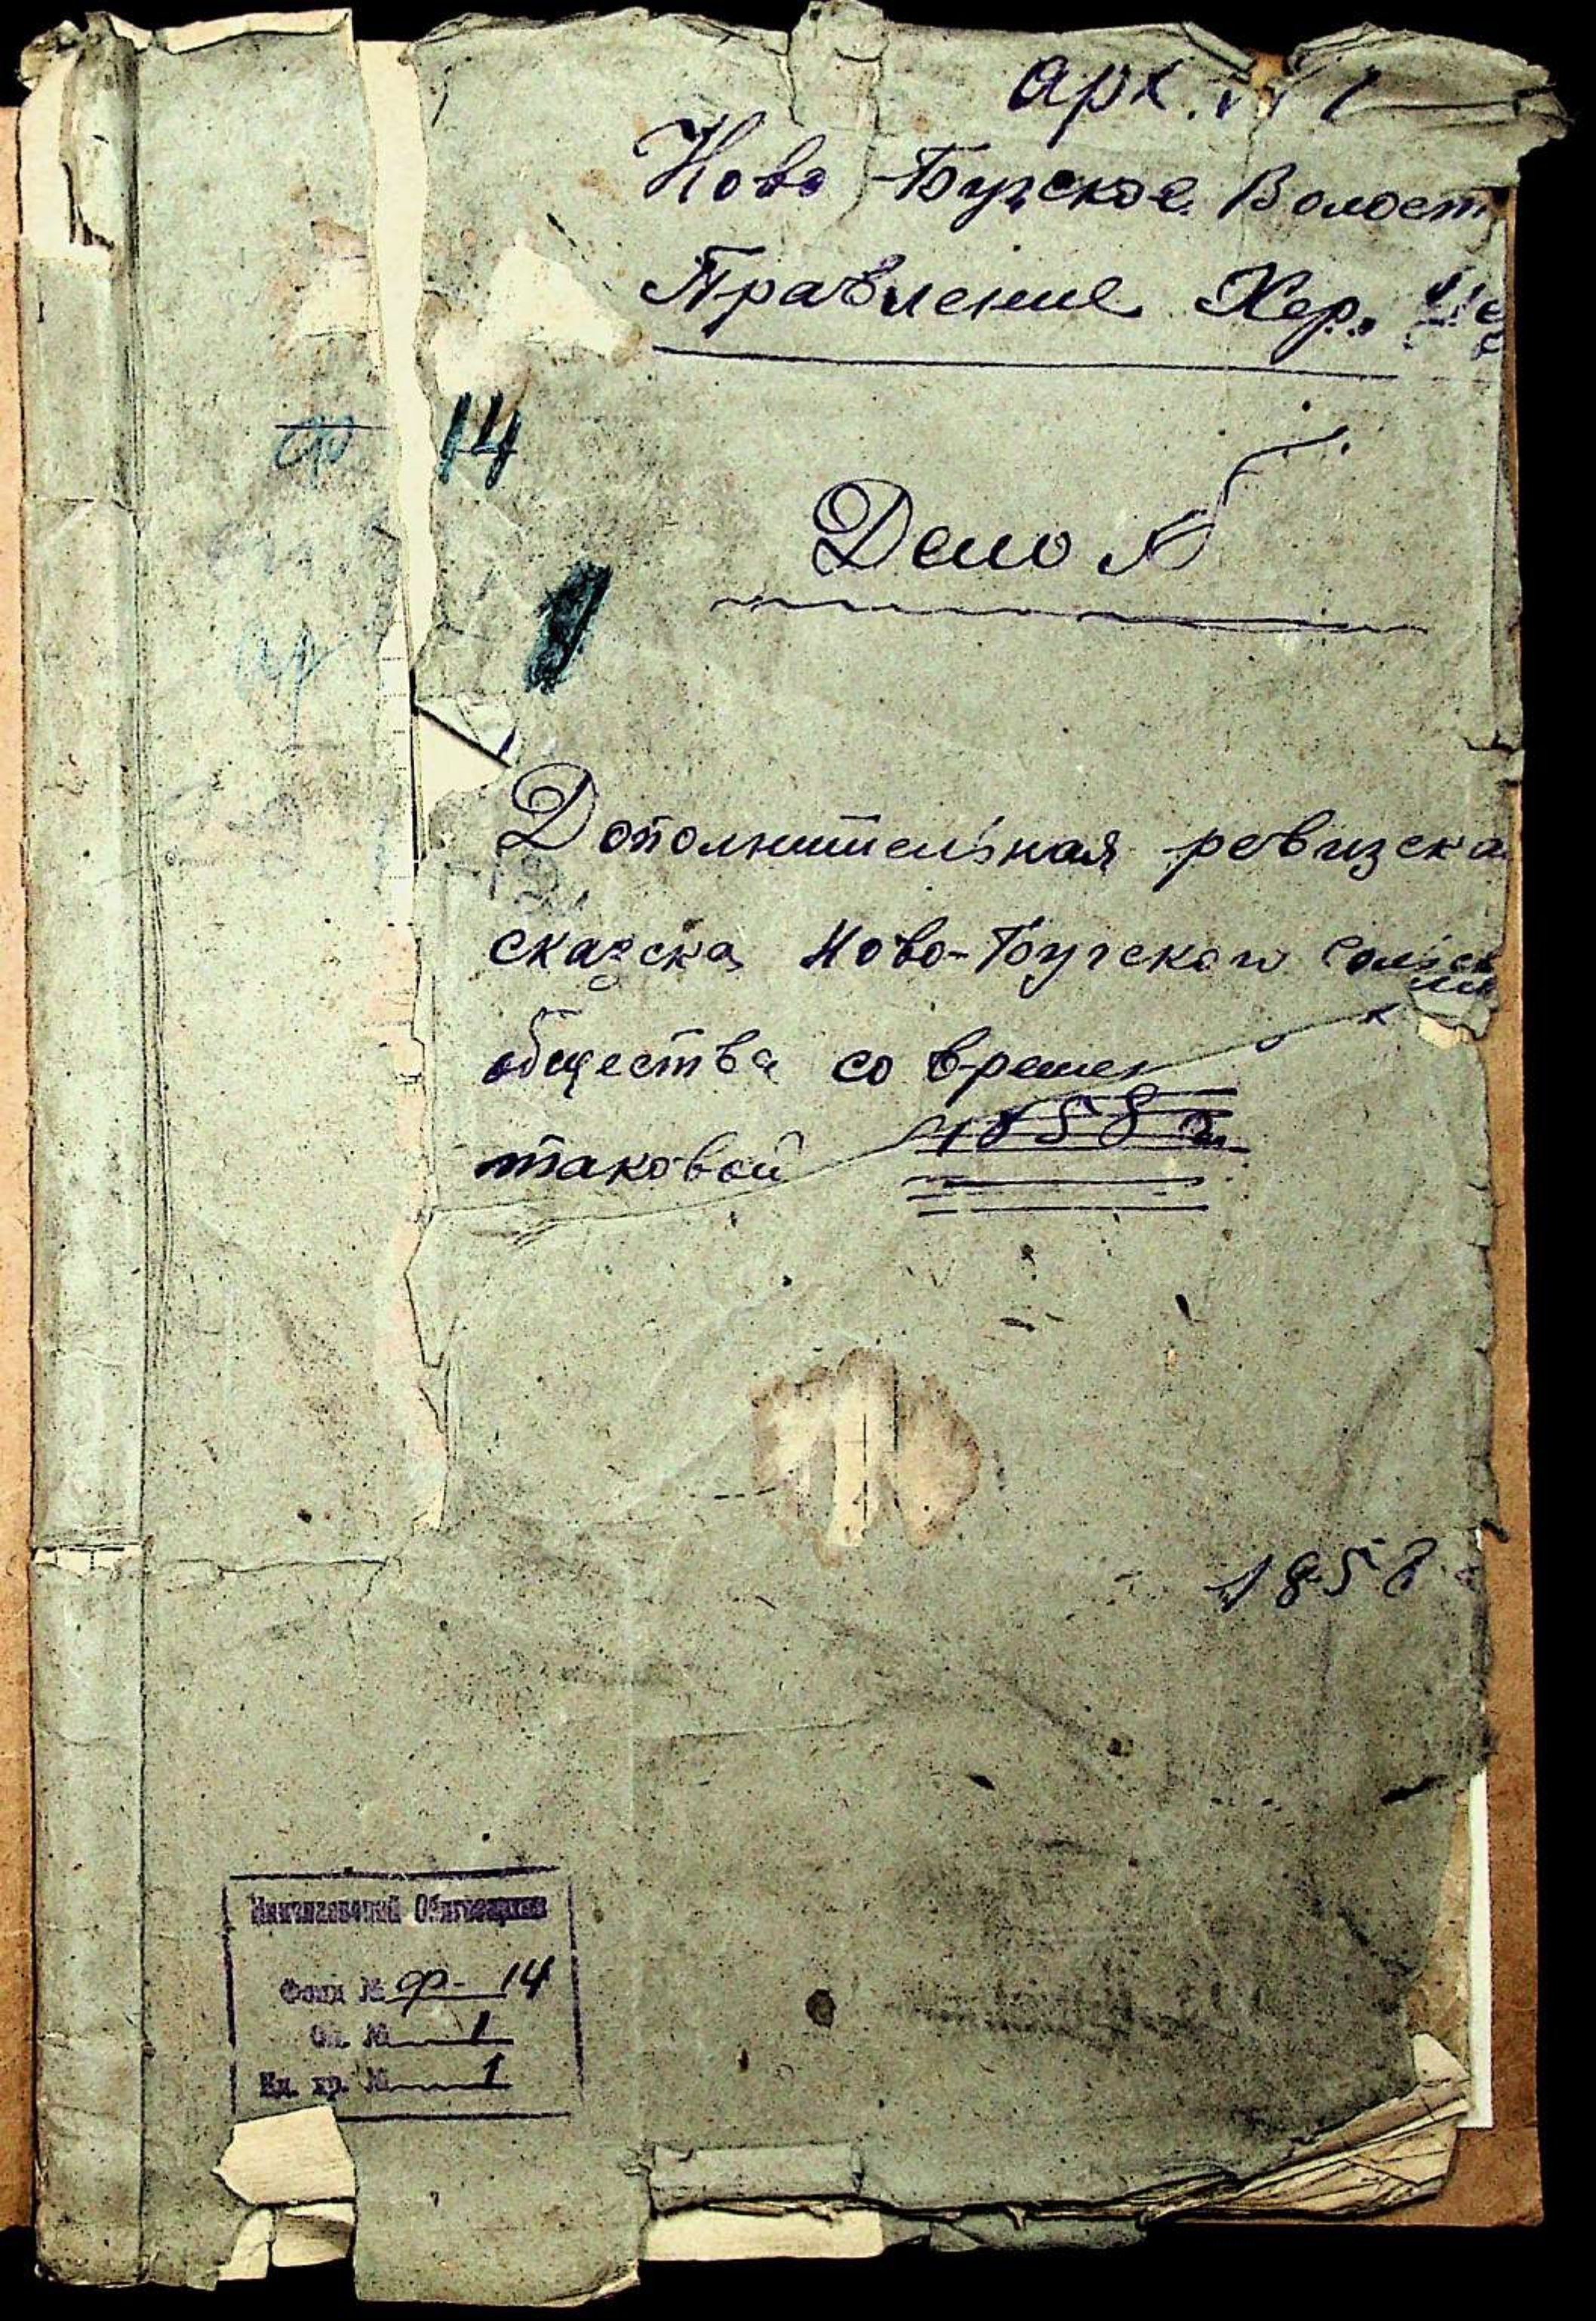 арх. № 1
Ново-Бугское Волост
Правление Хер.
ф 14
Дело №
1
Дополнительная ревизска
сказска Ново-Бугского
общества со времен
таковой 1858 г.
1858
Николаевский Облгосархив
Фонд № Ф- 14
Оп. № 1
Ед. хр. № 1